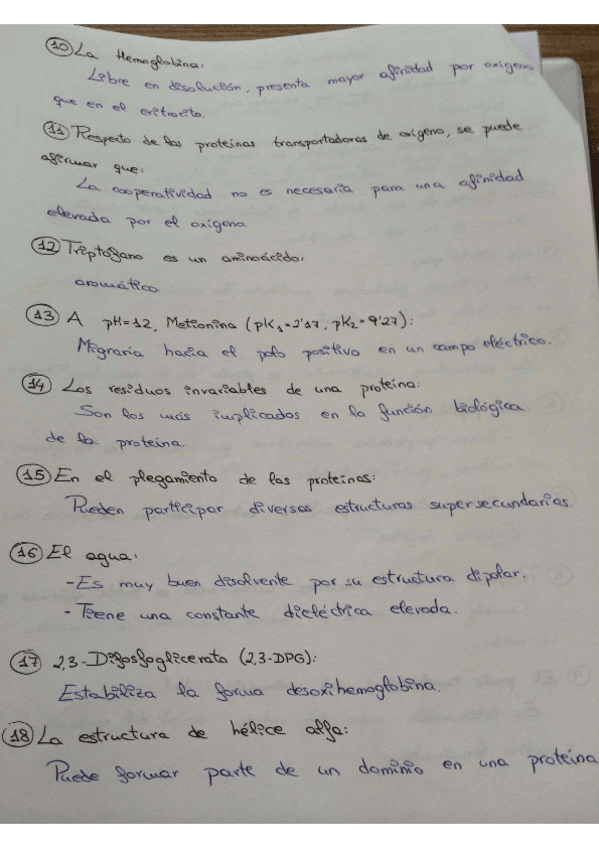 10 La Hemoglobina:
Libre en disolución, presenta mayor afinidad por oxígeno
que en el eritrocito.
11 Respecto de las proteínas transportadoras de oxígeno, se puede
afirmar que:
La cooperatividad no es necesaria para una afinidad
elevada por el oxígeno.
12 Triptófano es un aminoácido:
aromático
13 A pH=12, Metionina (pK1=2'17, pK2=9'27):
Migraría hacia el polo positivo en un campo eléctrico.
14 Los residuos invariables de una proteína:
Son los más implicados en la función biológica
de la proteína.
15 En el plegamiento de las proteínas:
Pueden participar diversas estructuras supersecundarias.
16 El agua:
-Es muy buen disolvente por su estructura dipolar.
-Tiene una constante dieléctrica elevada.
17 2,3-Difosfoglicerato (2,3-DPG):
Estabiliza la forma desoxihemoglobina.
18 La estructura de hélice alfa:
Puede formar parte de un dominio en una proteína